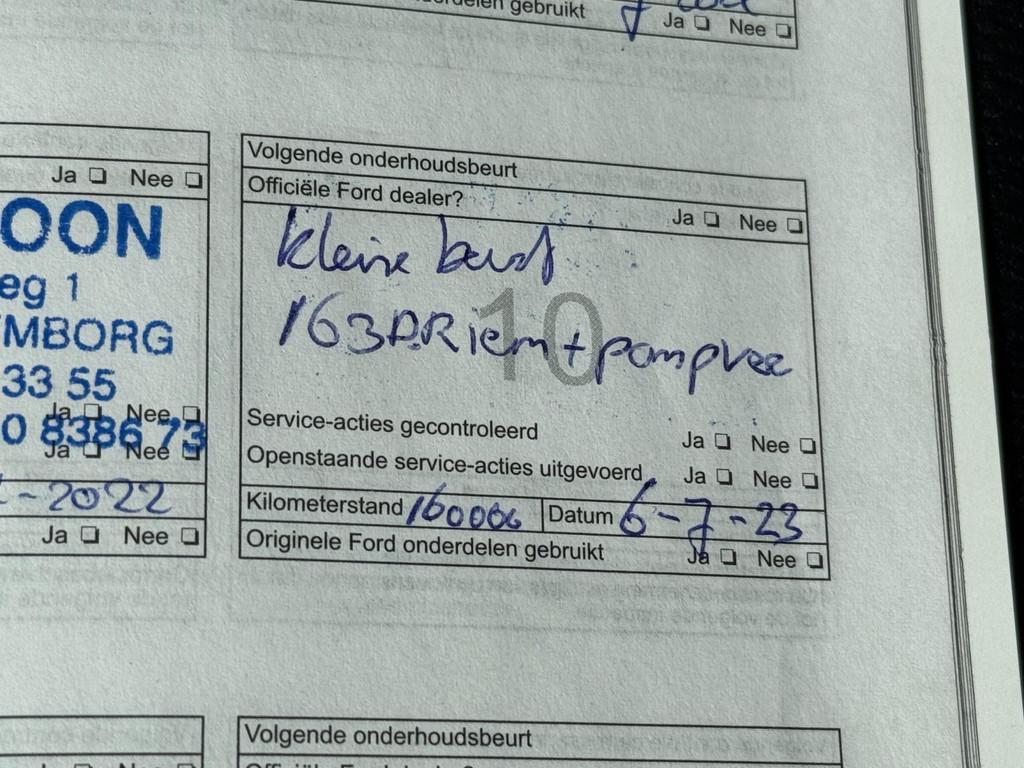 onderdelen gebruikt Ja Nee
Ja Nee
OON
eg 1
MBORG
33 55
Ja Nee
0 8386 73
Ja Nee
-2022
Ja Nee
Volgende onderhoudsbeurt
Officiële Ford dealer? Ja Nee
kleine beurt
10
Riem + pomp
Service-acties gecontroleerd Ja Nee
Openstaande service-acties uitgevoerd Ja Nee
Kilometerstand 160000 Datum 6-7-23
Originele Ford onderdelen gebruikt Ja Nee
Volgende onderhoudsbeurt